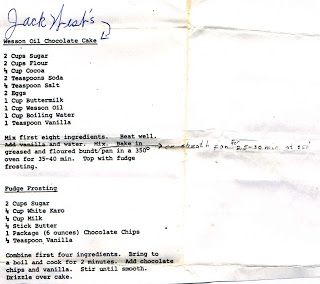 Jack West's
Wesson Oil Chocolate Cake
2 Cups Sugar
2 Cups Flour
½ Cup Cocoa
2 Teaspoons Soda
½ Teaspoon Salt
2 Eggs
1 Cup Buttermilk
1 Cup Wesson Oil
1 Cup Boiling Water
1 Teaspoon Vanilla
Mix first eight ingredients. Beat well.
Add vanilla and water. Mix. Bake in
greased and floured bundt/pan in a 350°
oven for 35-40 min. Top with fudge
frosting.
pan for 25-30 min at 350°
Fudge Frosting
2 Cups Sugar
¼ Cup White Karo
½ Cup Milk
½ Stick Butter
1 Package (6 ounces) Chocolate Chips
½ Teaspoon Vanilla
Combine first four ingredients. Bring to
a boil and cook for 2 minutes. Add chocolate
chips and vanilla. Stir until smooth.
Drizzle over cake.